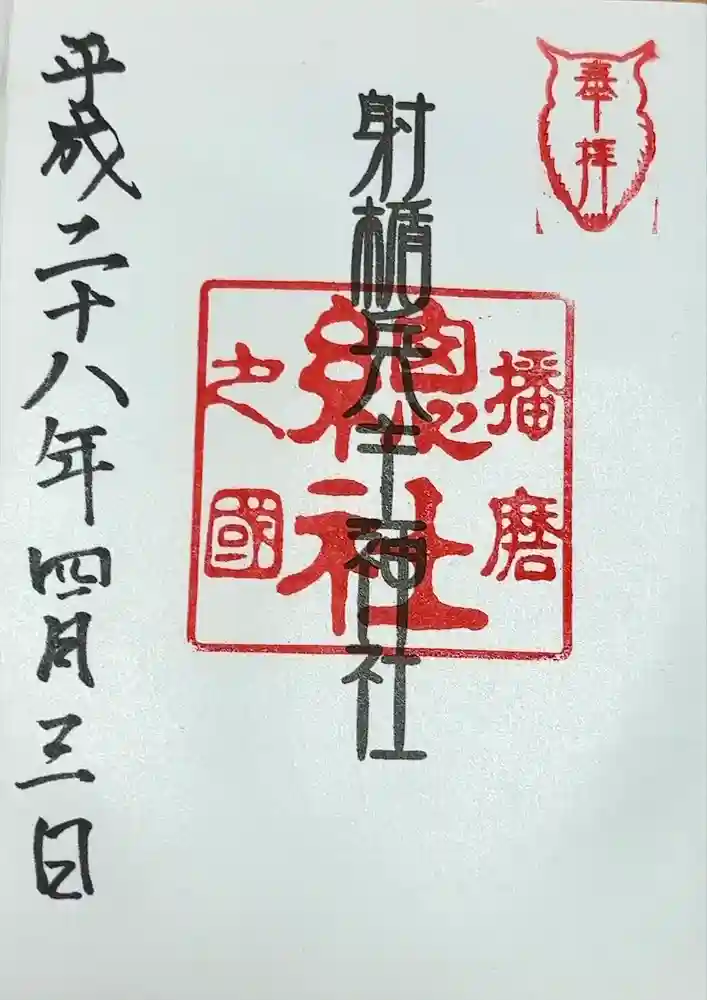 奉拝
播磨
總社
之國
射楯兵主神社
平成二十八年四月三日